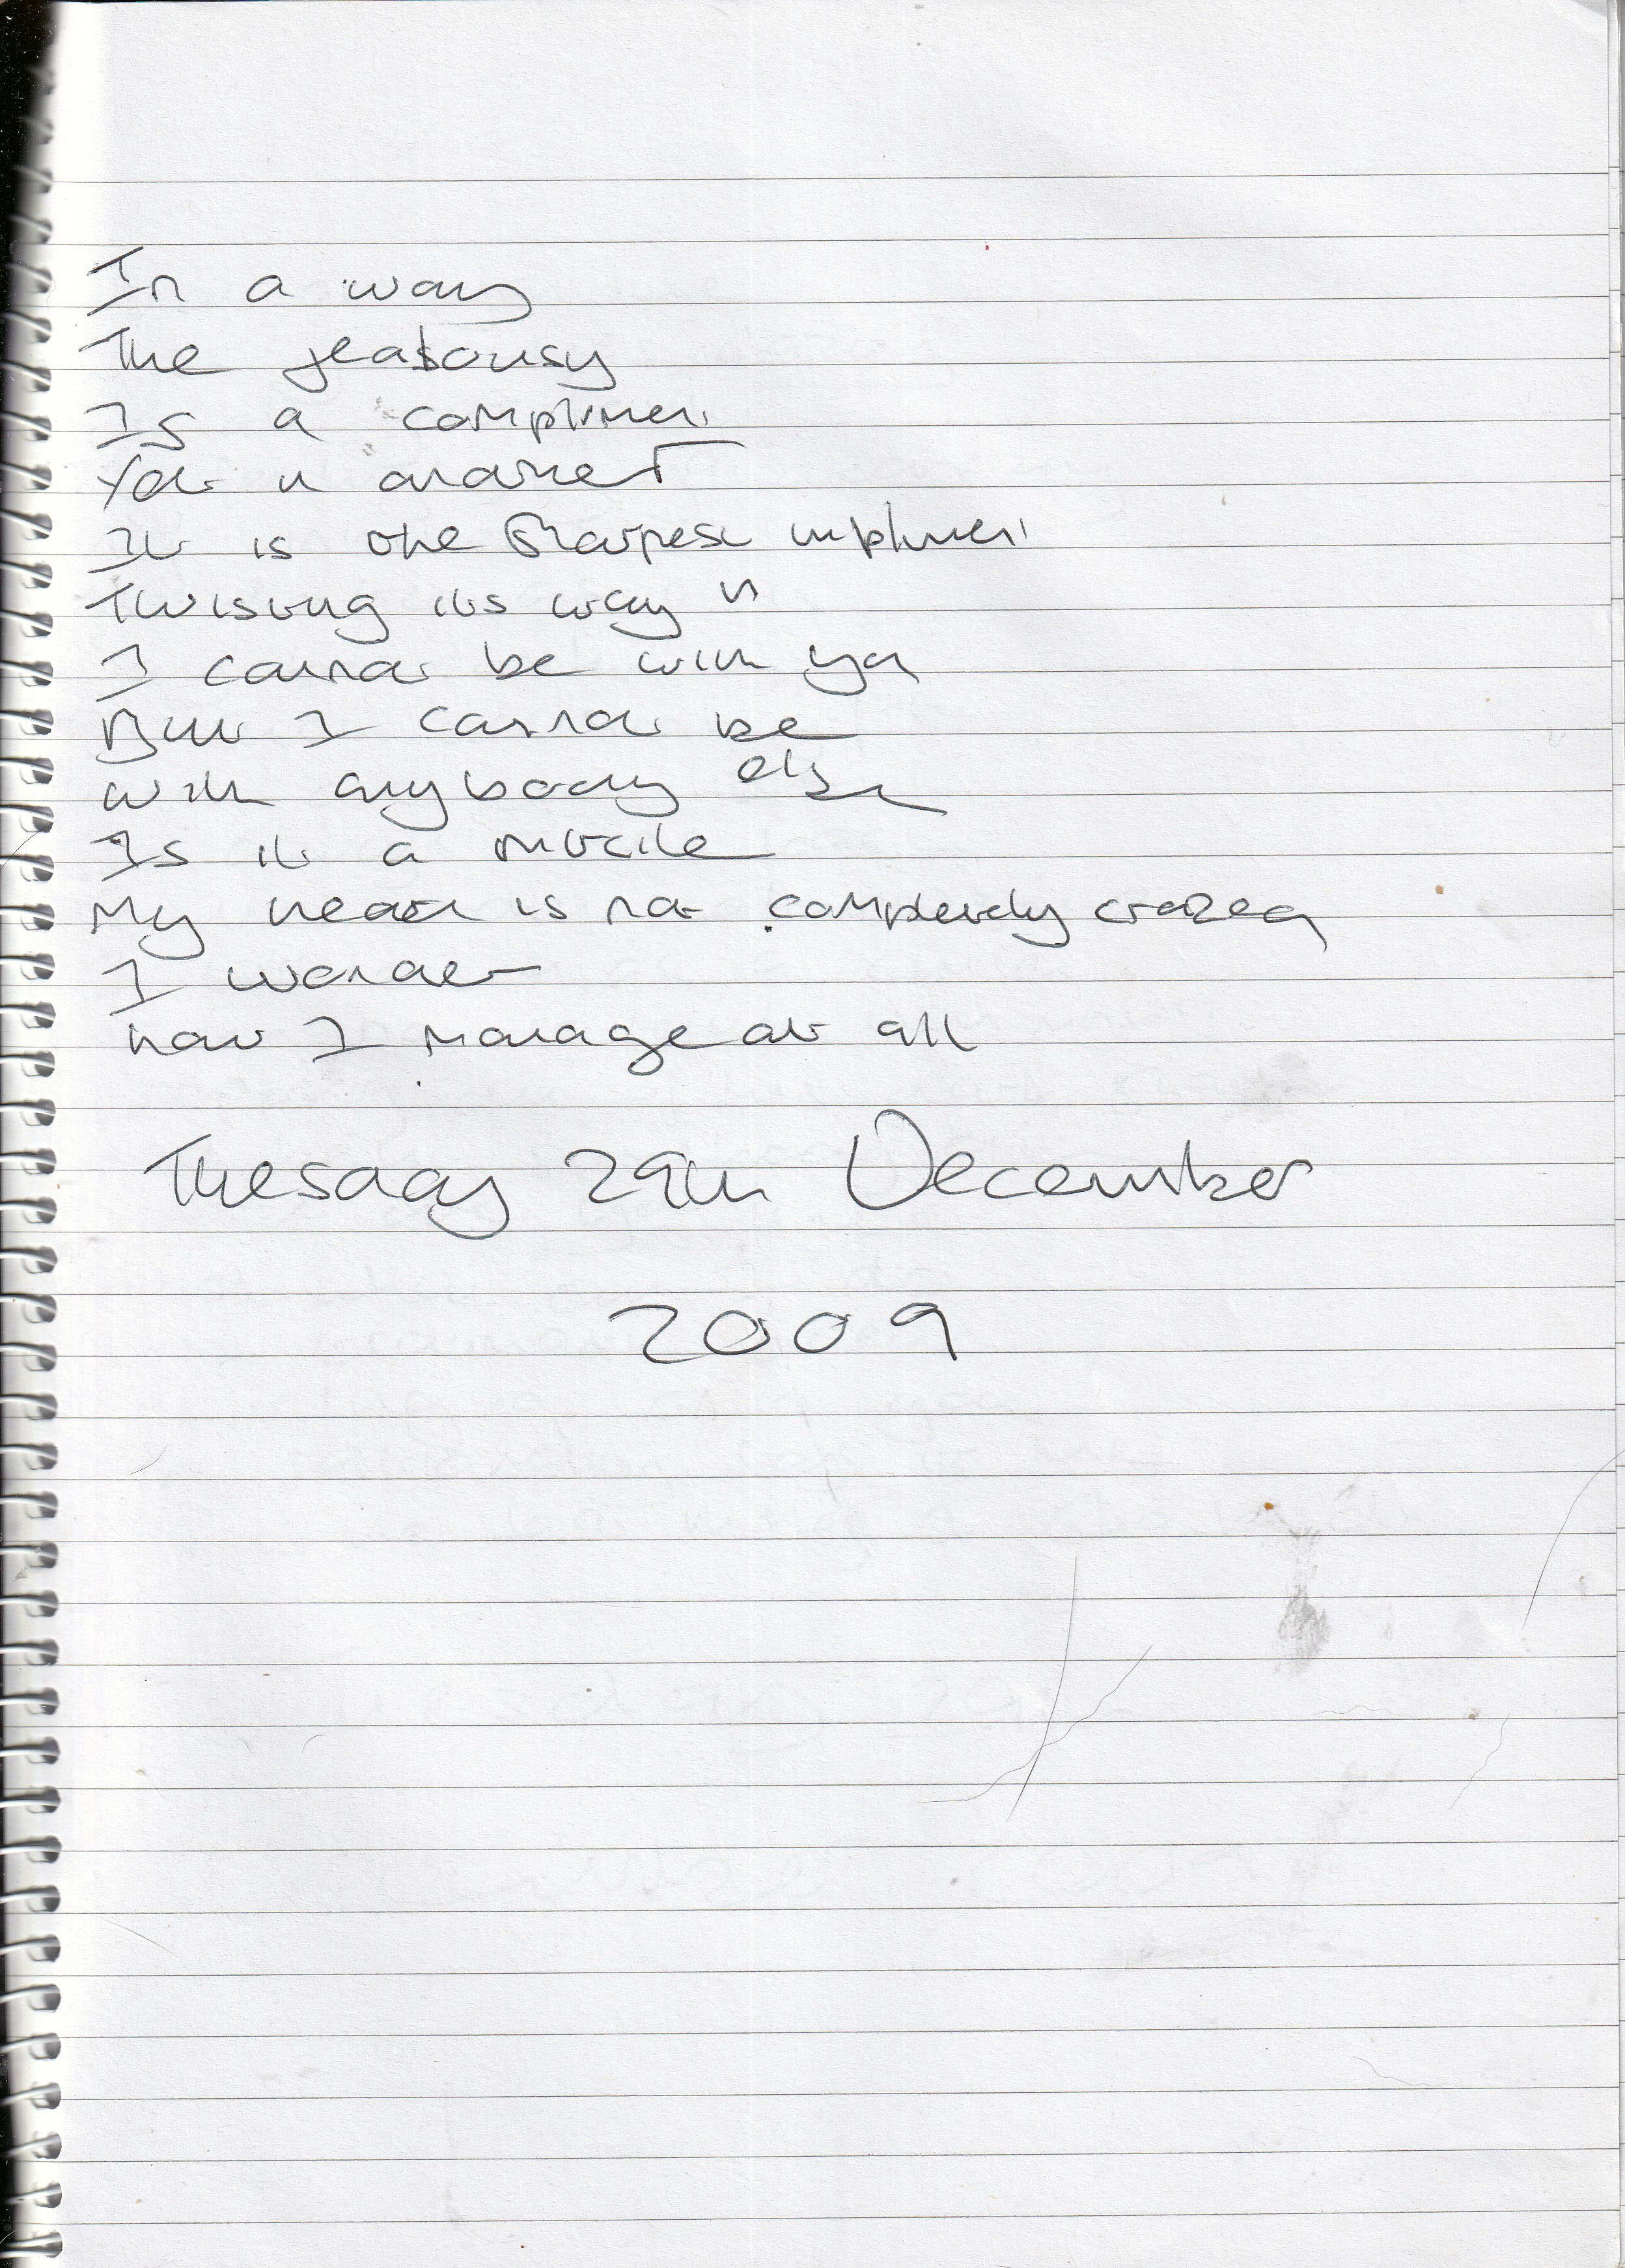 In a way
The jealousy
Is a compliment
Yet in another
It is the sharpest implement
Twisting its way in
I cannot be with you
But I cannot be
with anybody else
Is it a miracle
My head is not completely crazed
I wonder
how I manage at all
Tuesday 29th December
2009